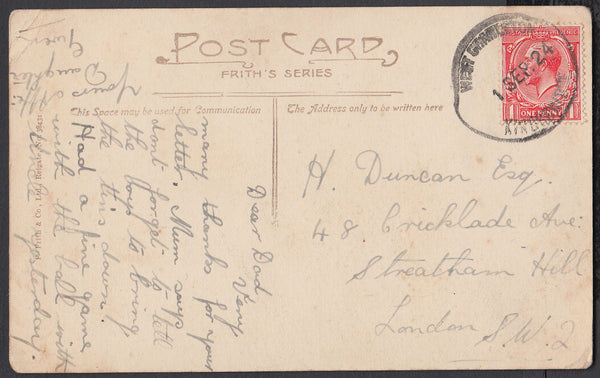 POST CARD
FRITH'S SERIES
This Space may be used for Communication
The Address only to be written here
1 SEP 24
ONE PENNY
1
1
H. Duncan Esq.
48 Cricklade Ave:
Streatham Hill
London
S.W.2
Dear Dad,
Very
many thanks for your
letter. Mum says
dont forget to tell
the boys to bring
the tins down.
Had a fine game
with the ball with
Uncle yesterday.
Your
Daughter
& Co., Ltd., Reigate